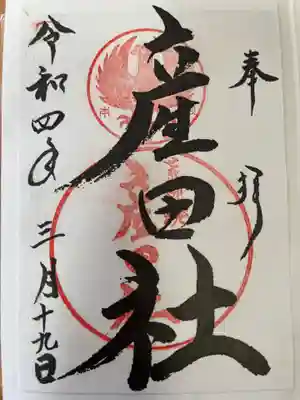 奉拝
産田社
令和四年三月十九日